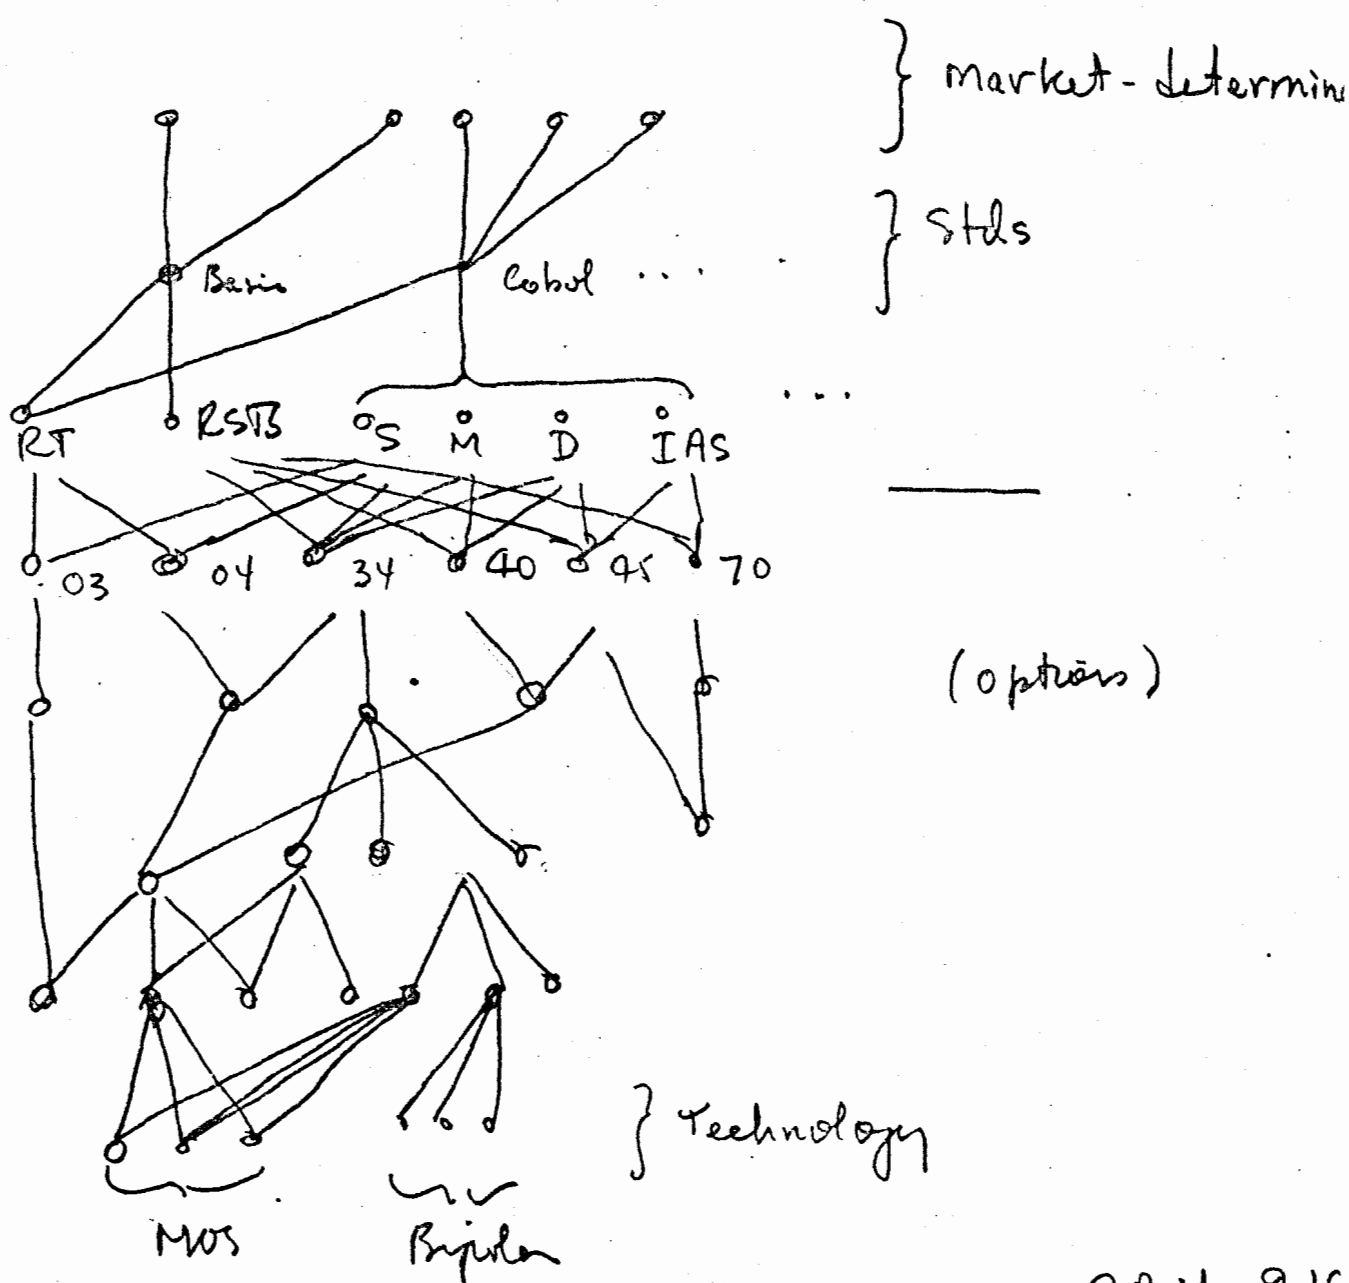 market-determin
Stds
Basic Cobol . . . .
. . .
RT RSTS S M D IAS
03 04 34 40 45 70
(options)
} Technology
MOS Bipolar